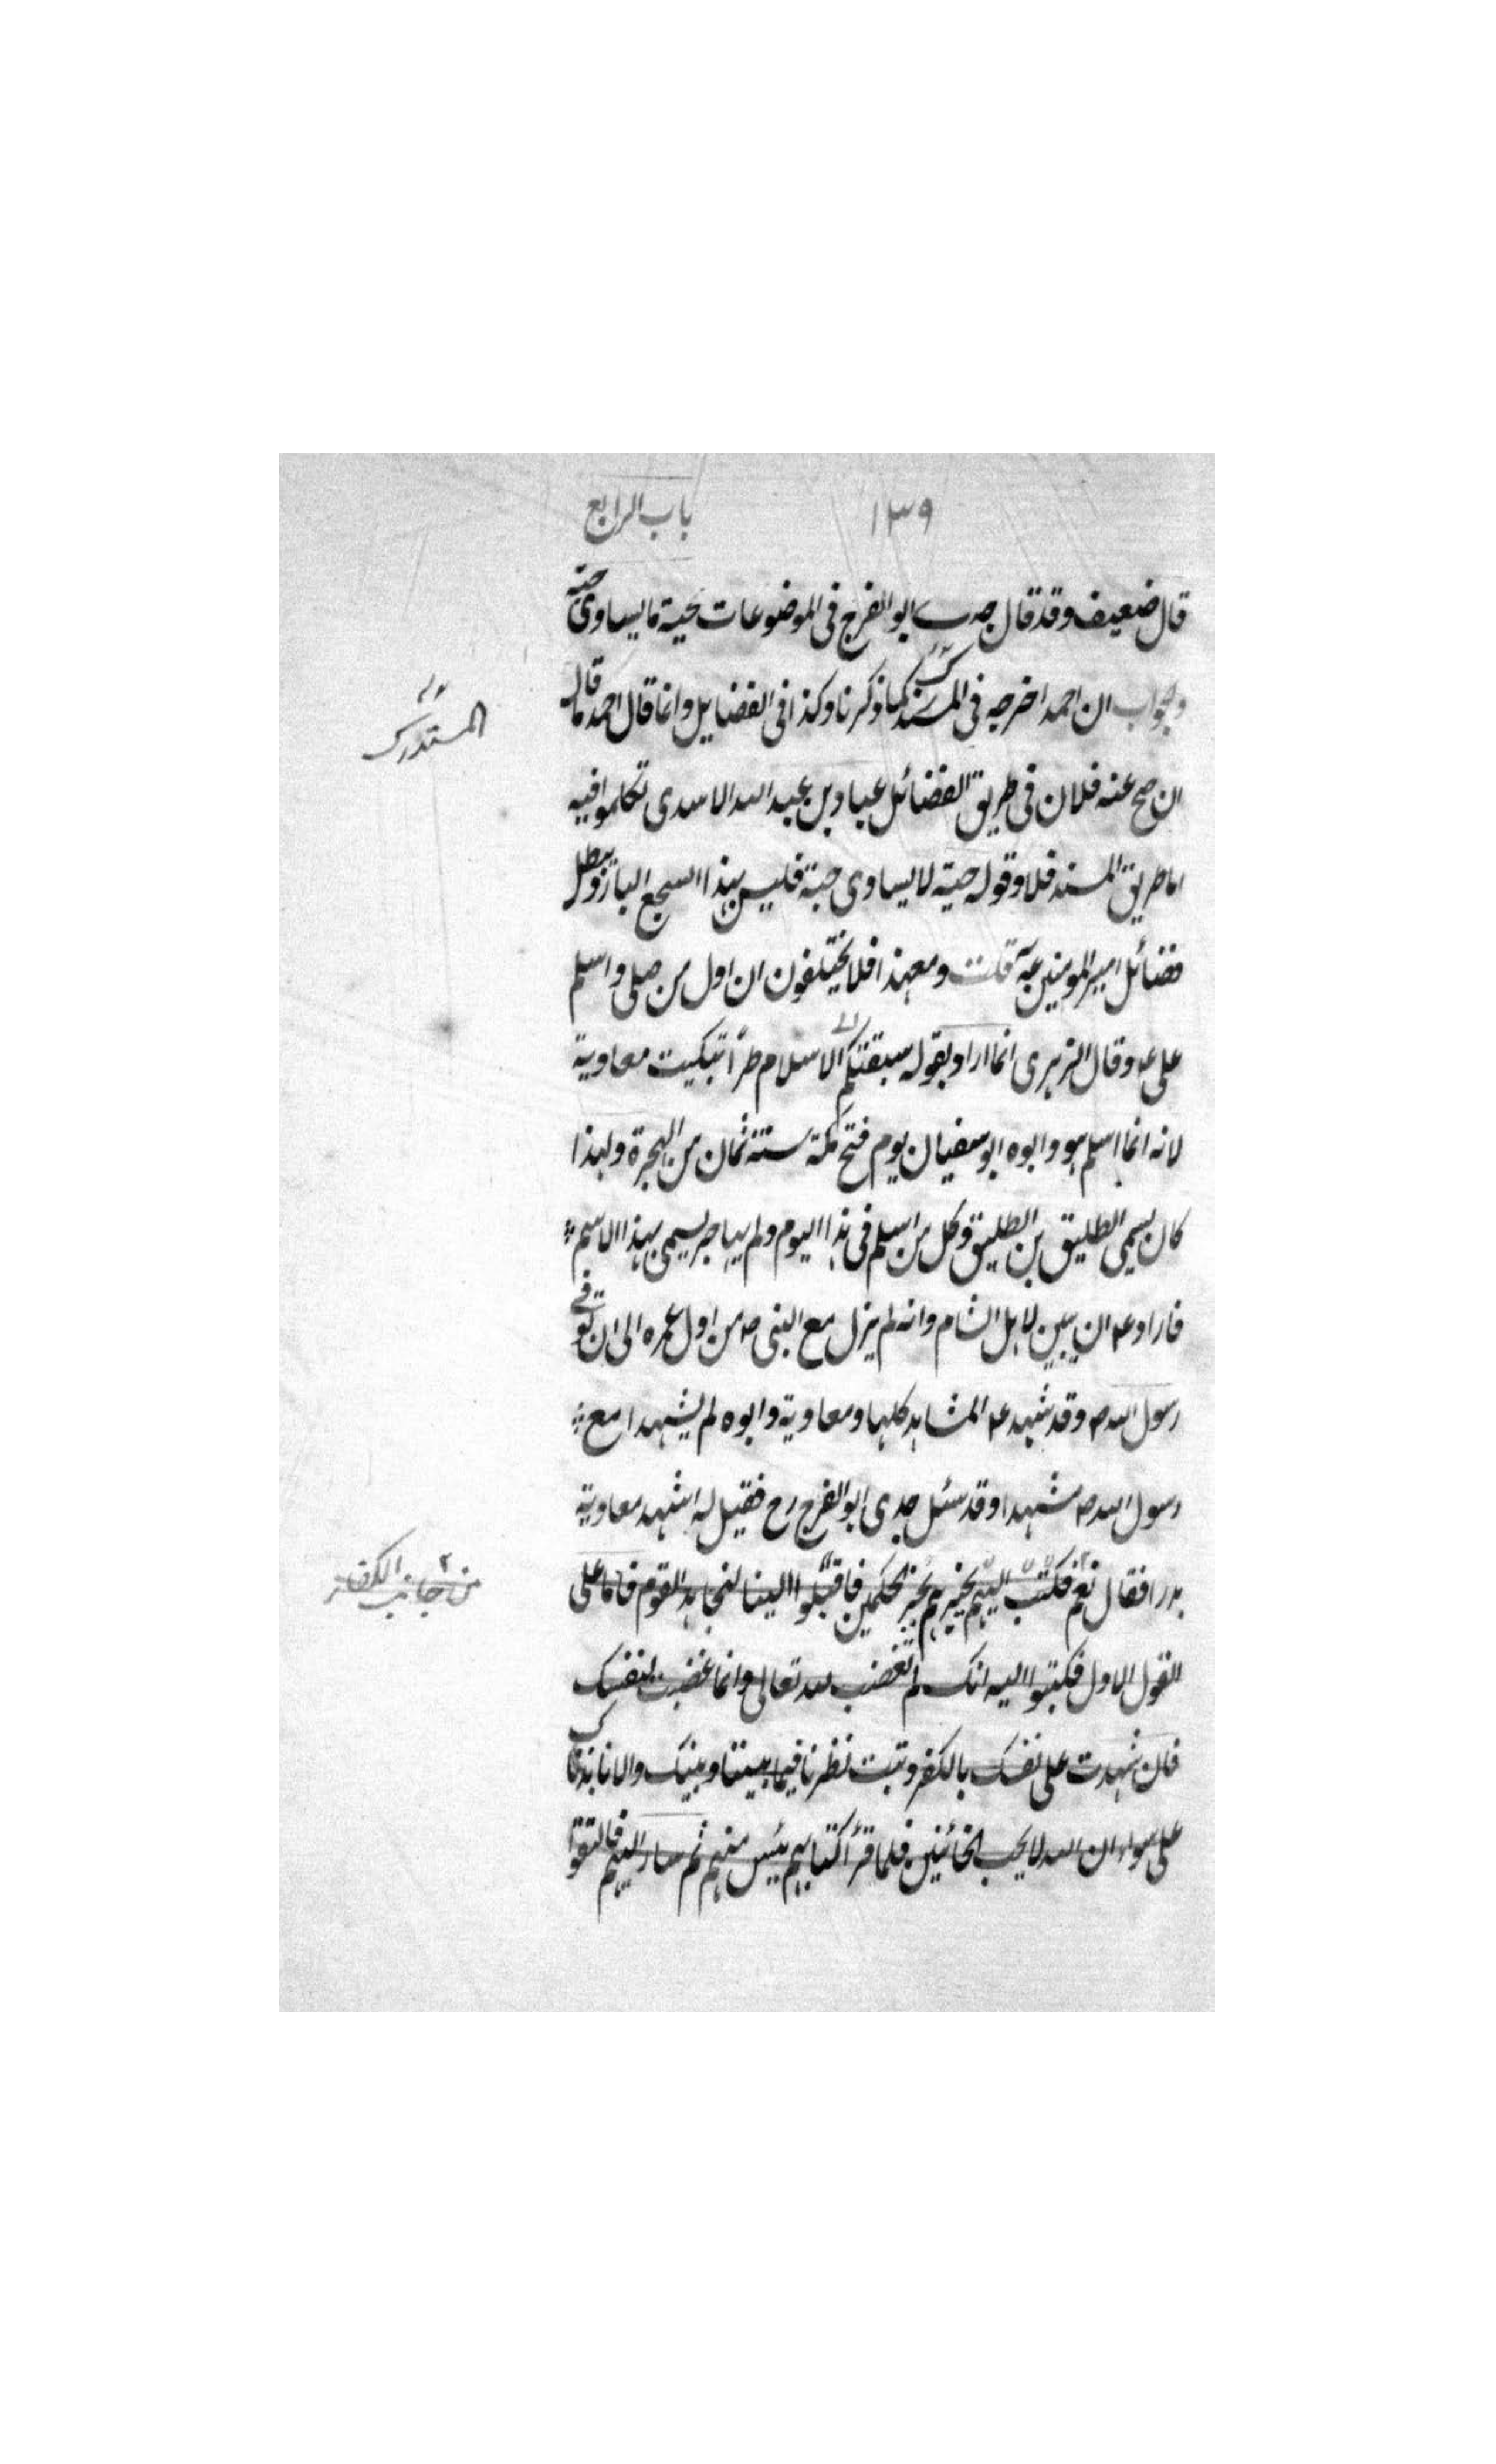 ١٣٩ باب الرابع
قال ضعيف وقد قال جدى ابو الفرج فى الموضوعات حية ما يساوى حبة
وجواب ان احمد اخرجه فى المسند كما ذكرنا وكذا فى الفضايل وانما قال احمد ما قال
ان صح عنه فلان فى طريق الفضائل عباد بن عبد الله الاسدى تكلموا فيه
اما طريق المسند فلا وقوله حية لا يساوى حبة فليس بهذا السجع البارد يبطل
فضائل امير المومنين عم قلت ومعهذا فلا يختلفون ان اول من صلى واسلم
على عم وقال الزهرى انما اراد بقوله سبقتكم الى الاسلام طرًا تبكيت معاوية
لانه انما اسلم هو وابوه ابو سفيان يوم فتح مكة سنة ثمان من الهجرة ولهذا
كان يسمى الطليق بن الطليق وكل من اسلم فى هذا اليوم ولم يهاجر يسمى بهذا الاسم
فاراد عم ان يبين لاهل الشام وانه لم يزل مع النبى ص من اول عمره الى ان توفى
رسول الله ص وقد شهد عم المشاهد كلها ومعاوية وابوه لم يشهدا مع
رسول الله ص مشهدا وقد سئل جدى ابو الفرج رح فقيل له اشهد معاوية
بدرا فقال نعم فكتب اليهم يخبرهم بخبر الحكمين فاقبلوا الينا لنجاهد القوم فانا على
القول الاول فكتبوا اليه انك لم تغضب لله تعالى وانما غضبت لنفسك
فان شهدت على نفسك بالكفر وتبت نظرنا فيما بيننا وبينك والا نابذناك
على سواء ان الله لا يحب الخائنين فلما قرأ كتابهم يئس منهم ثم سار اليهم فالتقوا
المستدرك
من جانب الكفر